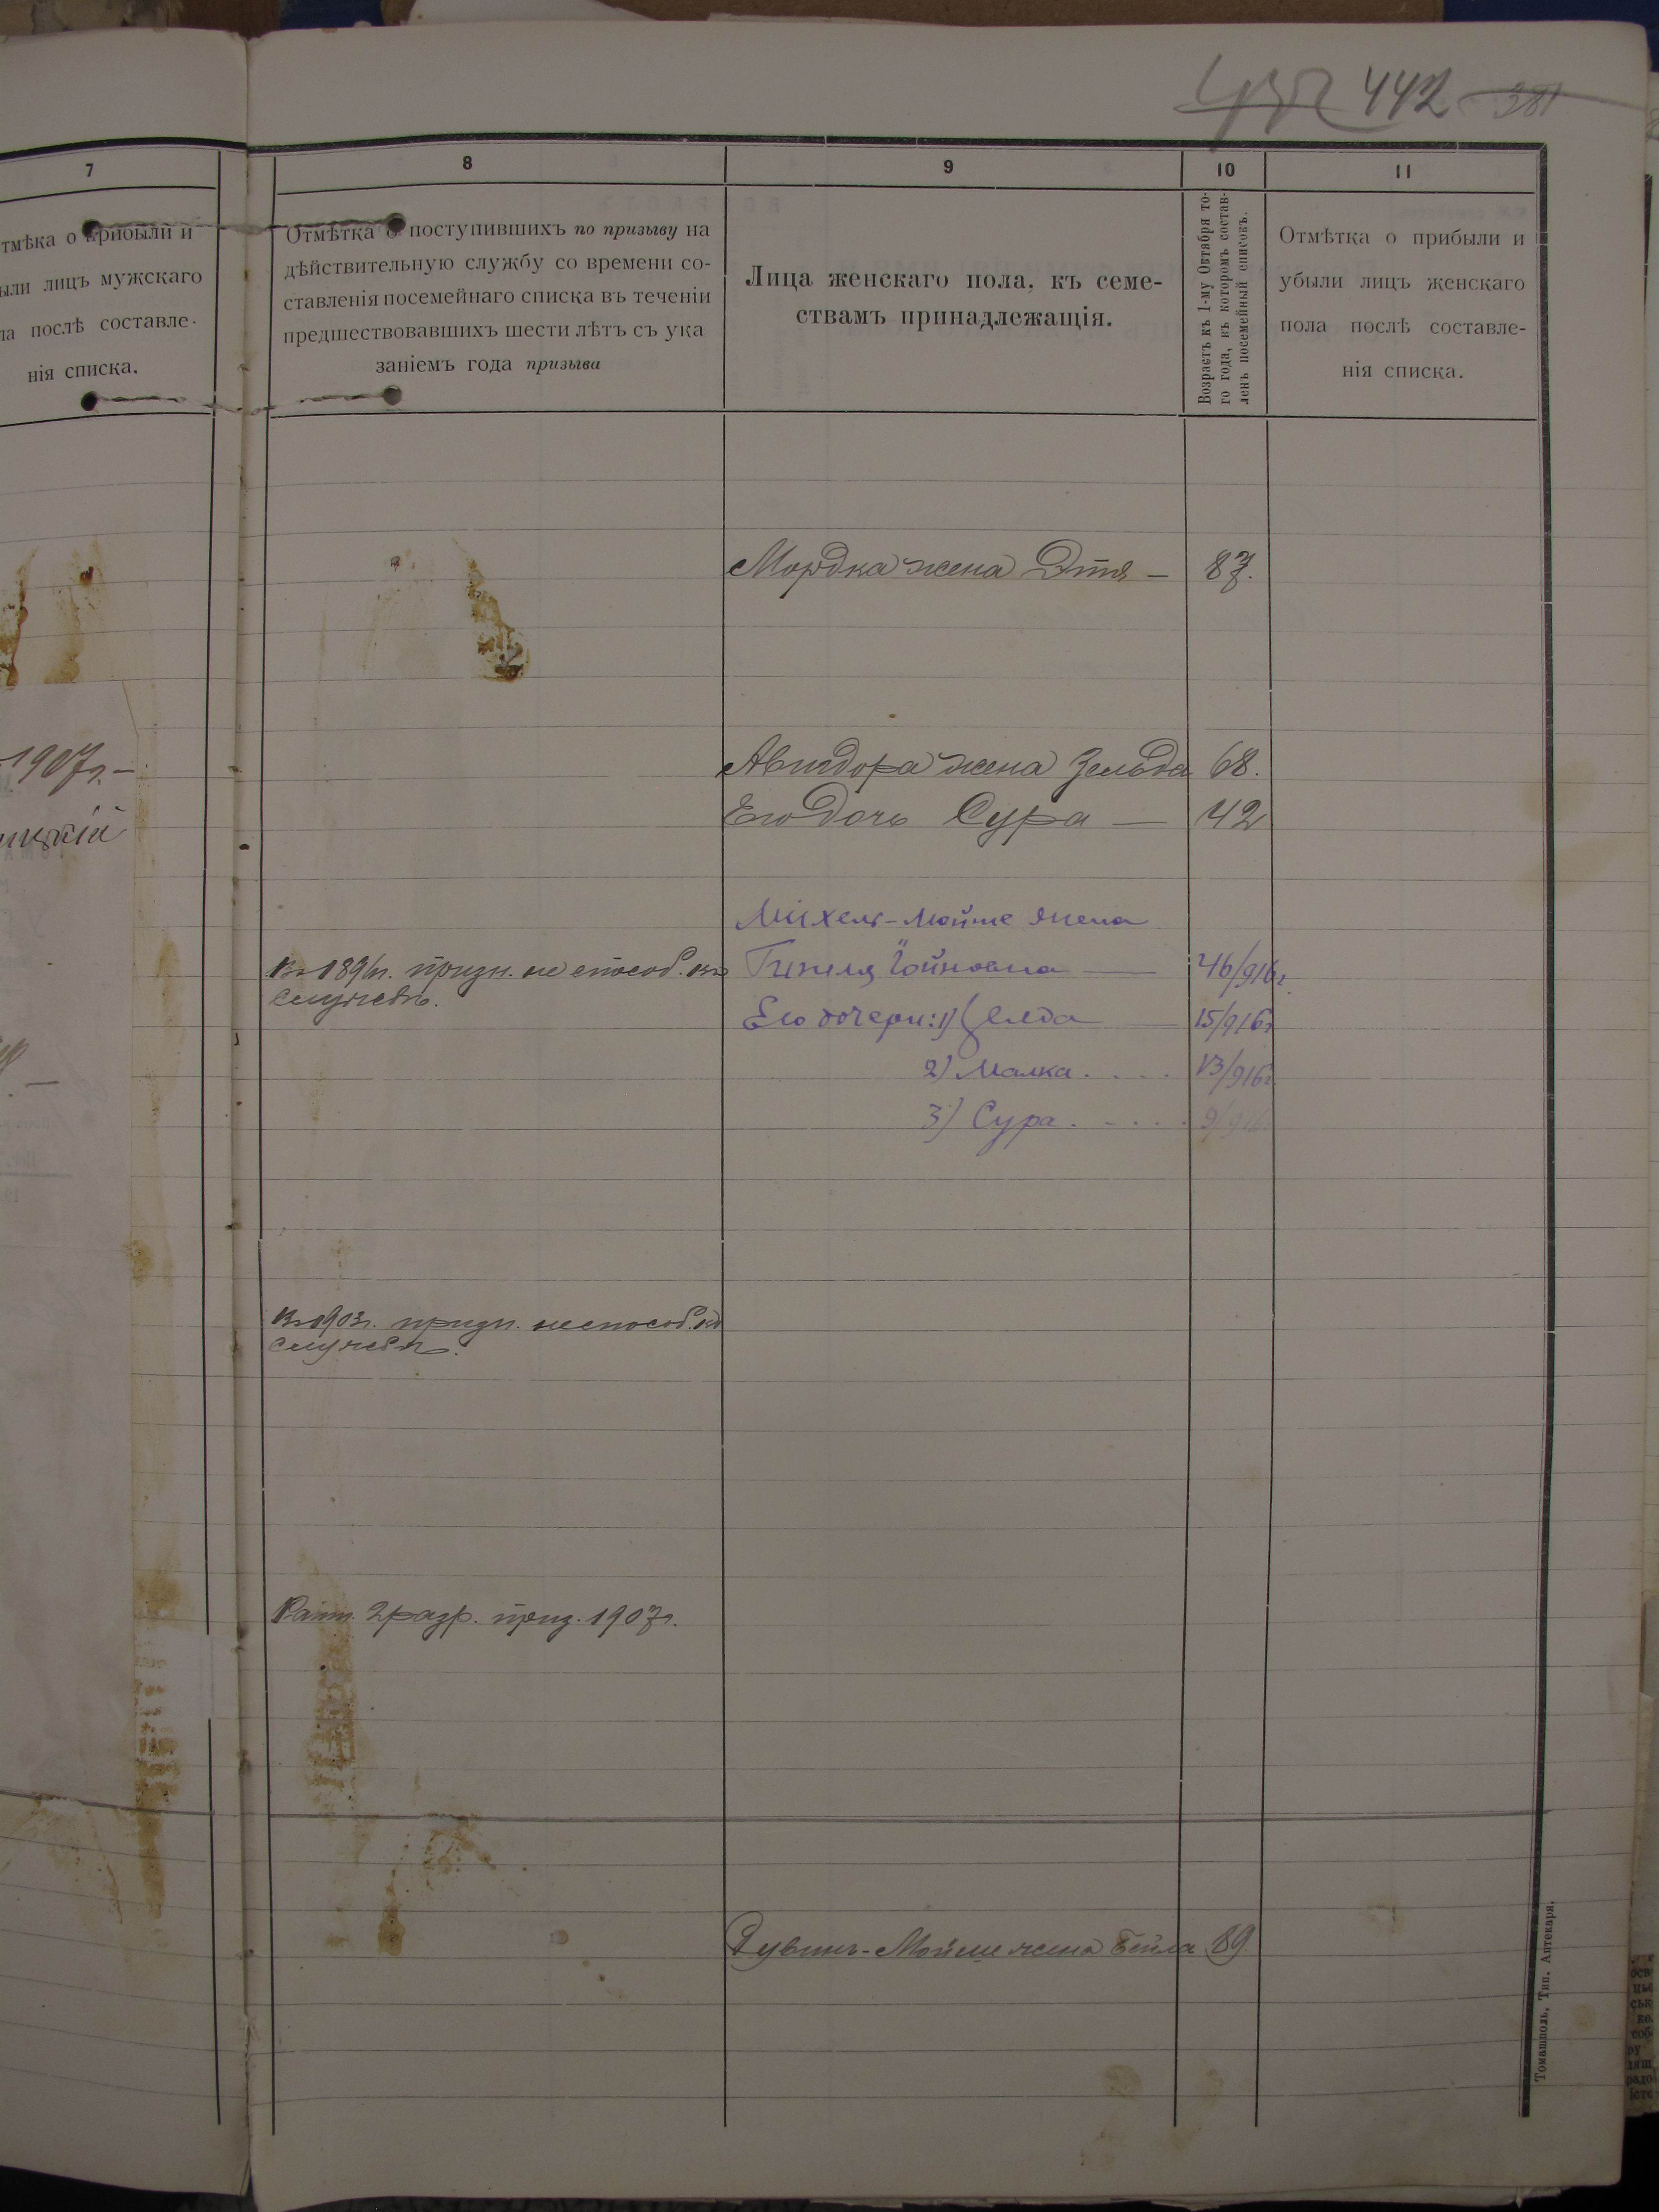 442 381
7
8
9
10
11
тмѣка о прибыли и
ыли лицъ мужскаго
ла послѣ составле-
нія списка.
Отмѣтка о поступившихъ по призыву на
дѣйствительную службу со времени со-
ставленія посемейнаго списка въ теченіи
предшествовавшихъ шести лѣтъ съ ука
заніемъ года призыва
Лица женскаго пола, къ семе-
ствамъ принадлежащія.
Возрастъ къ 1-му Октября то-
го года, къ которомъ состав-
ленъ посемейный списокъ.
Отмѣтка о прибыли и
убыли лицъ женскаго
пола послѣ составле-
нія списка.
Мордка жена Этя — 87.
1907г.—
Авидора жена Зельда 68.
Его дочь Сура — 42
Михель-Мойше жена
Йойновна — 46/916г.
Его дочери: 1) Зелда — 15/916г
2) Малка. . . . 13/916г
3) Сура. . . . . 9/916
Въ 1896г. призн. не способ. къ
службѣ.
Въ 1903г. призн. неспособ. къ
службѣ.
Ратн. 2 разр. приз. 1907г.
Рувинъ-Мойше жена Бейла 89.
Томашполь, Тип. Аптекаря.